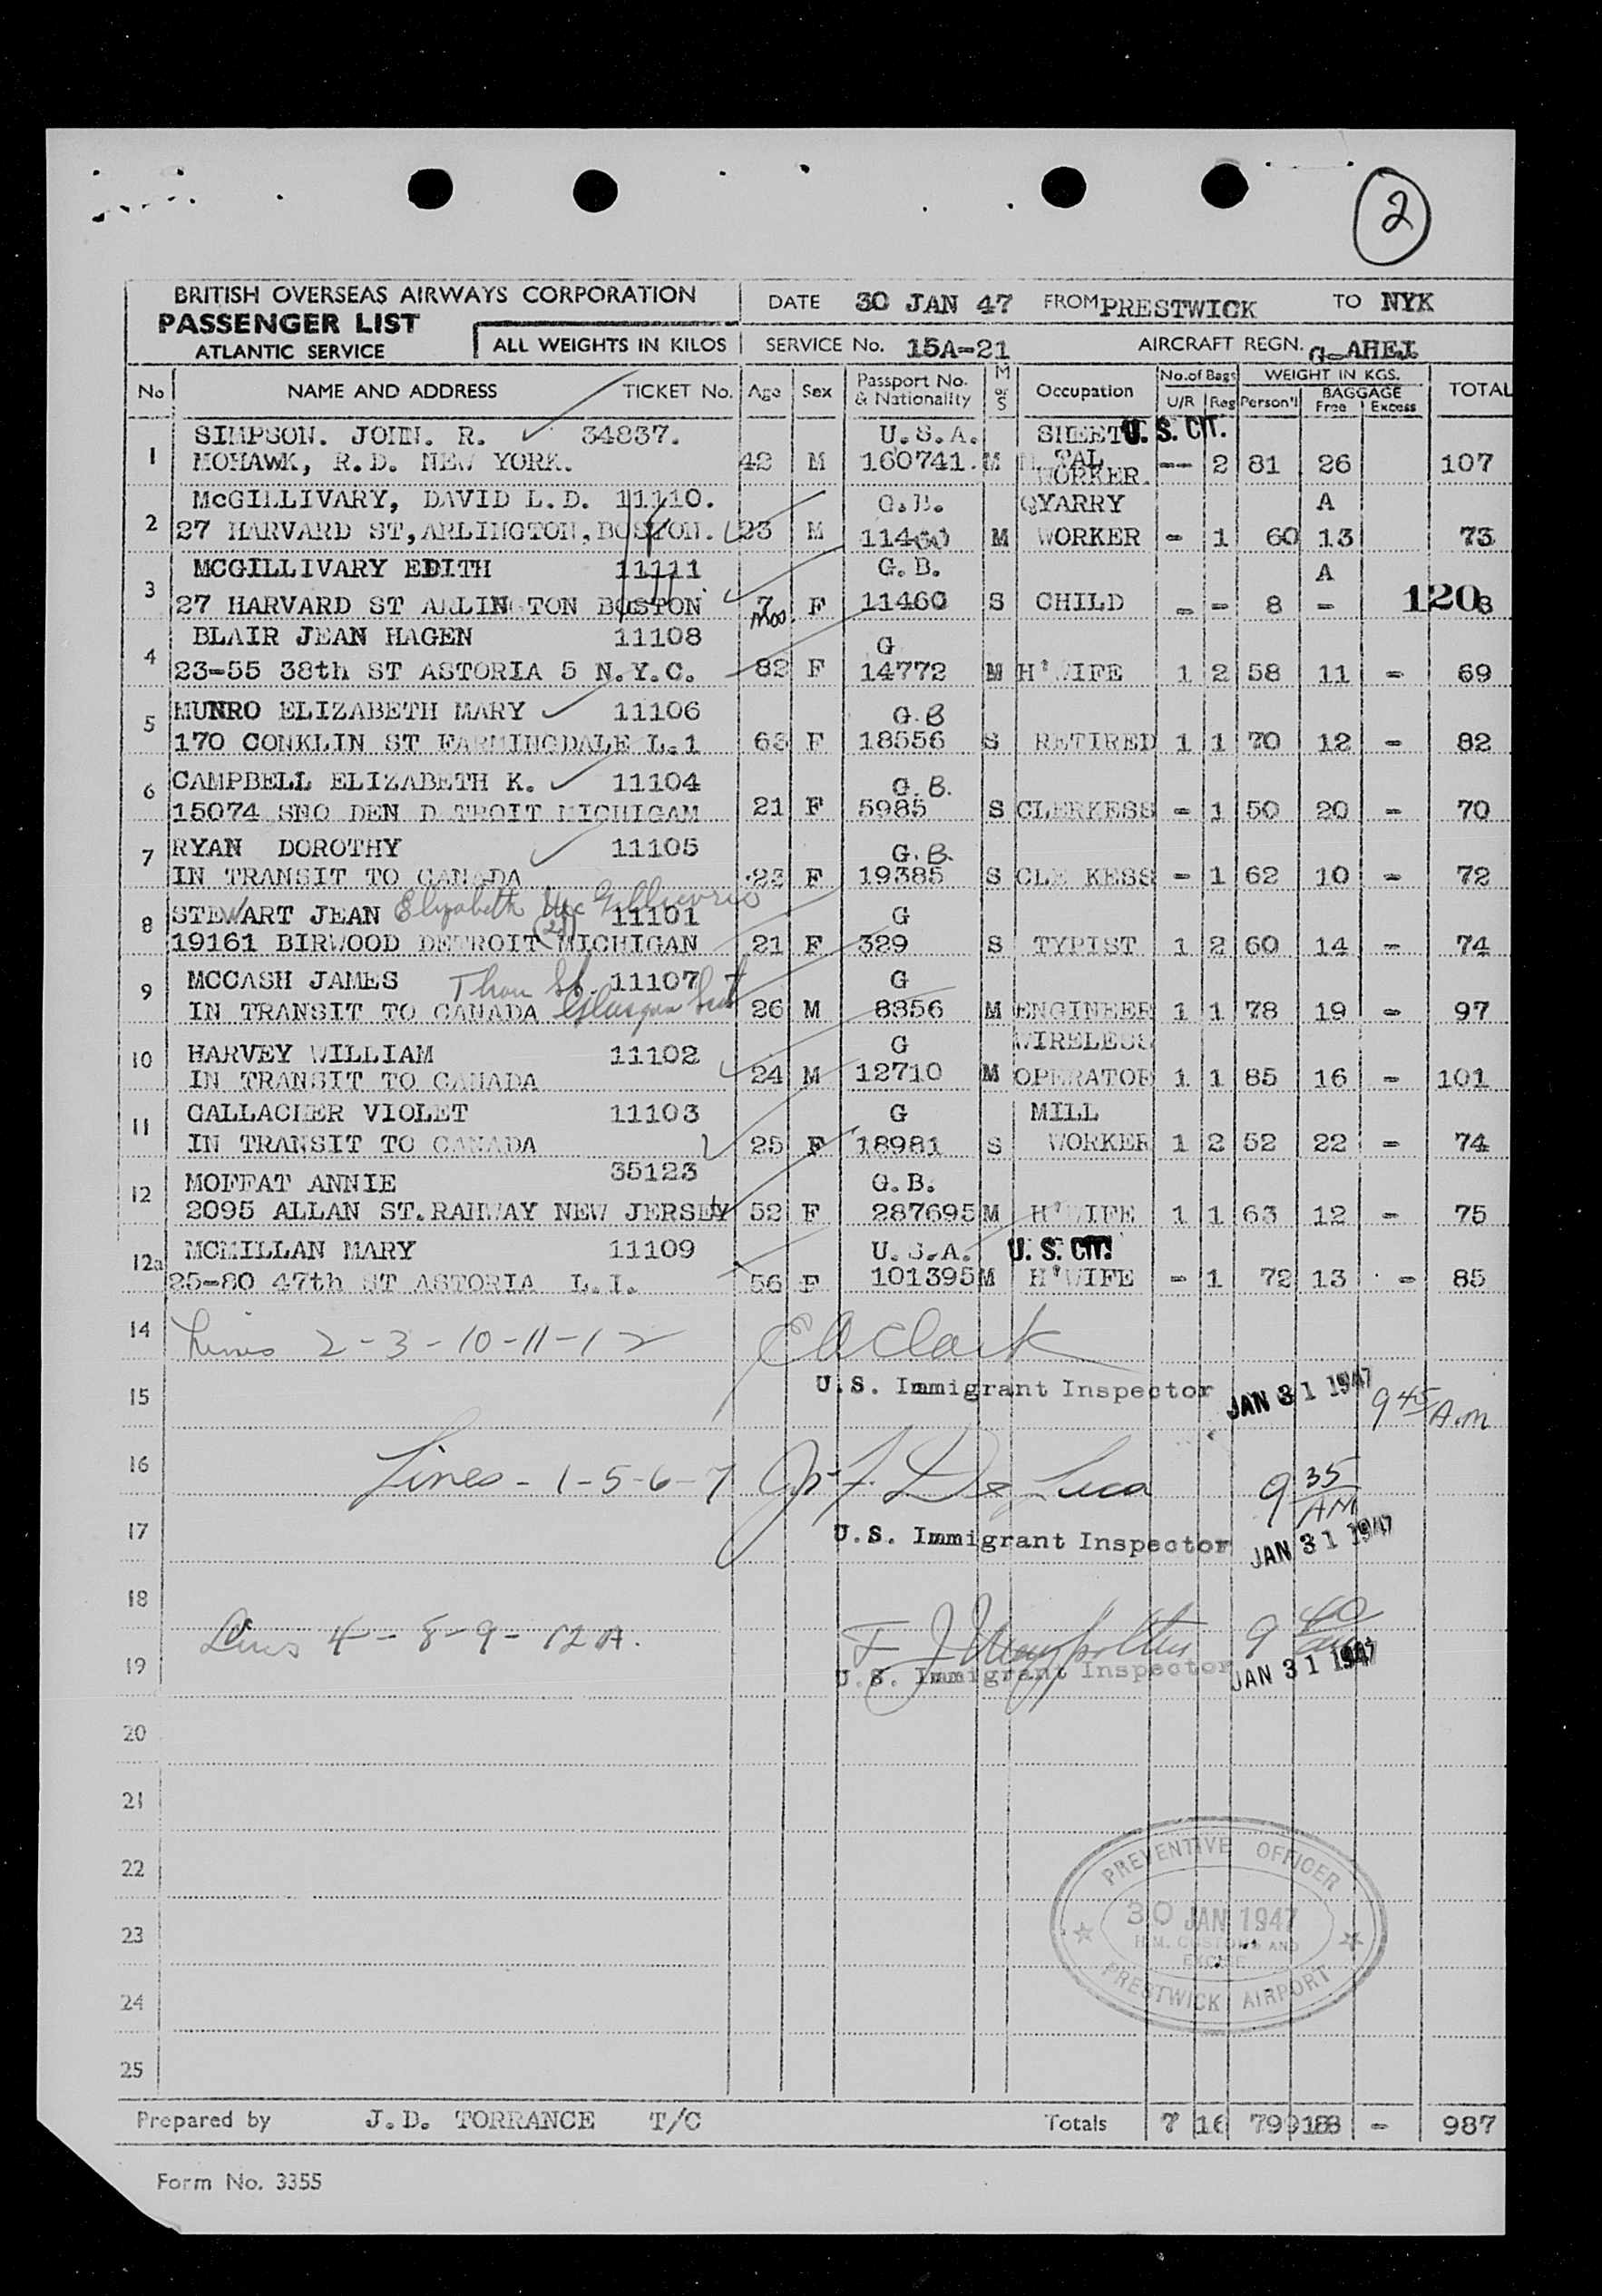 2
BRITISH OVERSEAS AIRWAYS CORPORATION
PASSENGER LIST
ATLANTIC SERVICE
ALL WEIGHTS IN KILOS
DATE 30 JAN 47 FROM PRESTWICK TO NYK
SERVICE No. 15A-21 AIRCRAFT REGN. G-AHEJ
No NAME AND ADDRESS TICKET No. Age Sex Passport No. & Nationality M or S Occupation No. of Bags U/R Reg WEIGHT IN KGS. Person'l BAGGAGE Free Excess TOTAL
1 SIMPSON. JOHN. R. 34837. U.S.A. SHEET U.S. CIT.
MOHAWK, R.D. NEW YORK. 42 M 160741. M METAL WORKER. -- 2 81 26 107
2 McGILLIVARY, DAVID L.D. 11110. G.B. QYARRY A
27 HARVARD ST, ARLINGTON, BOSTON. 23 M 11460 M WORKER - 1 60 13 73
3 MCGILLIVARY EDITH 11111 G.B. A
27 HARVARD ST ARLINGTON BOSTON 7 mos. F 11460 S CHILD - - 8 - 1208
4 BLAIR JEAN HAGEN 11108 G
23-55 38th ST ASTORIA 5 N.Y.C. 82 F 14772 M H'WIFE 1 2 58 11 - 69
5 MUNRO ELIZABETH MARY 11106 G.B
170 CONKLIN ST FARMINGDALE L.1 63 F 18556 S RETIRED 1 1 70 12 - 82
6 CAMPBELL ELIZABETH K. 11104 G.B.
15074 SNO DEN D TROIT MICHIGAM 21 F 5985 S CLERKESS - 1 50 20 - 70
7 RYAN DOROTHY 11105 G.B.
IN TRANSIT TO CANADA 23 F 19385 S CLE KESS - 1 62 10 - 72
8 STEWART JEAN Elizabeth 11101 G
19161 BIRWOOD DETROIT (21) MICHIGAN 21 F 329 S TYPIST 1 2 60 14 - 74
9 MCCASH JAMES St. 11107 G
IN TRANSIT TO CANADA Glasgow 26 M 8356 M ENGINEER 1 1 78 19 - 97
10 HARVEY WILLIAM 11102 G WIRELESS
IN TRANSIT TO CANADA 24 M 12710 M OPERATOR 1 1 85 16 - 101
11 GALLAGHER VIOLET 11103 G MILL
IN TRANSIT TO CANADA 25 F 18981 S WORKER 1 2 52 22 - 74
12 MOFFAT ANNIE 35123 G.B.
2095 ALLAN ST. RAHWAY NEW JERSEY 52 F 287695 M H'WIFE 1 1 63 12 - 75
12a MCMILLAN MARY 11109 U.S.A. U.S. CIT.
25-80 47th ST ASTORIA L.I. 56 F 101395 M H'WIFE - 1 72 13 - 85
14 Lines 2-3-10-11-12 E A Clark
15 U.S. Immigrant Inspector JAN 31 1947 9 45 A.m
16 Lines - 1-5-6-7 De Luca 9 35 AM
17 U.S. Immigrant Inspector JAN 31 1947
18
Lines 4-8-9-12A. 9 40 am
19 U.S. Immigrant Inspector JAN 31 1947
20
21
22
PREVENTIVE OFFICER
23 30 JAN 1947
H.M. CUSTOMS AND
EXCISE
PRESTWICK AIRPORT
24
25
Prepared by J.D. TORRANCE T/C Totals 7 16 799 188 - 987
Form No. 3355